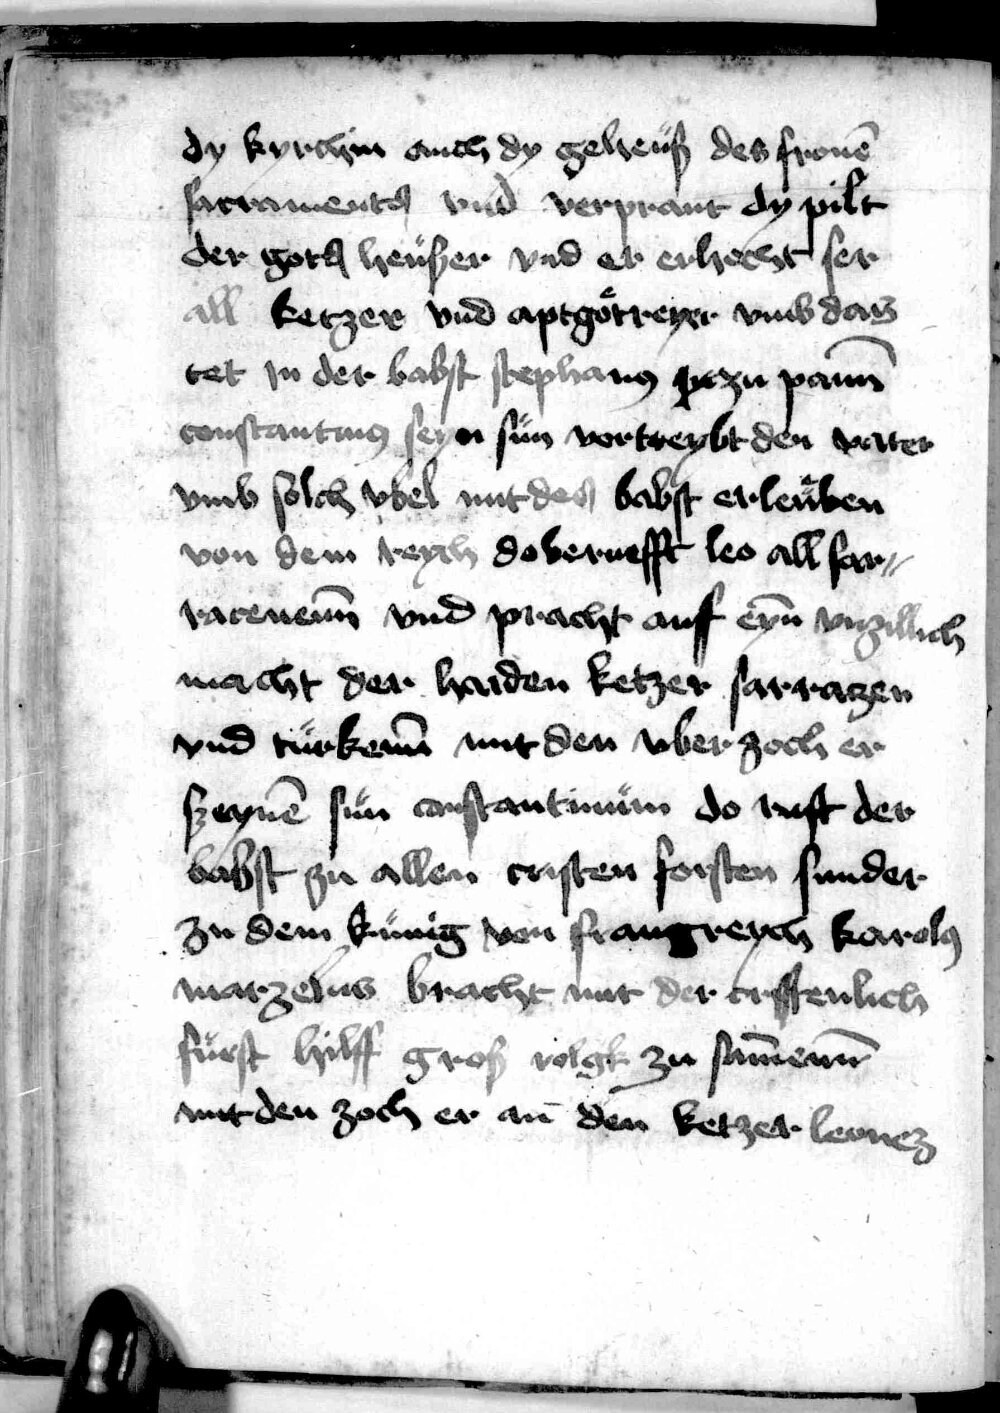 dy kyrchin auch dy geheüß des fronē
sacraments vnd verprant dy pilt
der gots heüßer vnd er erhecht ser
all ketzer vnd aptgötreyer vmb das
tet In der babst stephanꝰ zu pann̄
constantinꝰ seyn sün vertreybt den vater
vmb sölch vbel mit des babst erleüben
von dem reych do beruefft leo all sar⸗
racenenn̄ vnd pracht auff eyn̄ vnzillich
macht der haiden ketzer sarrazen
vnd türkenn̄ mit den vber zoch er
szeynē sün constantinüm do ruft der
babst zu allen cristen forsten sunder
zu dem künig von frangreych karolꝰ
marzelus bracht mit der cristenlich
fürst hilff groß volgk zu sam̄enn̄
mit den zoch er an̄ den ketzer leonez